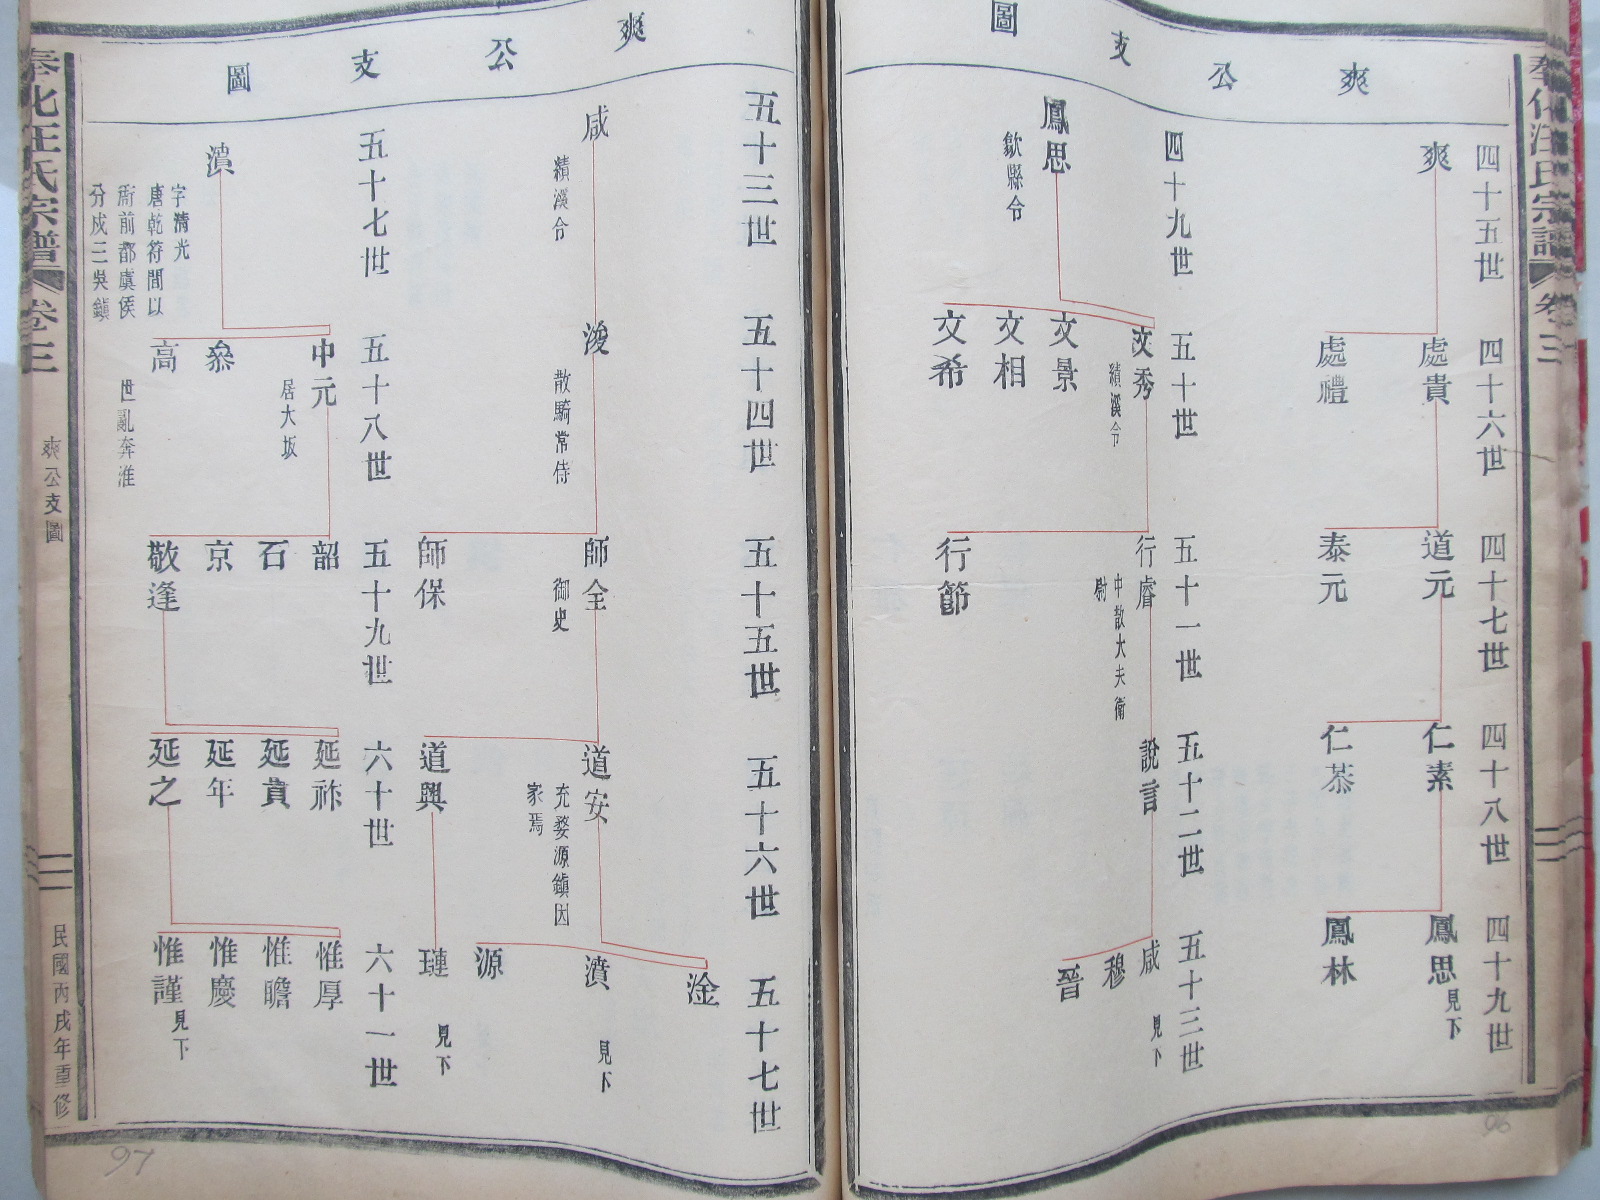 奉化汪氏宗譜
卷三
爽公支圖
四十五世
四十六世
四十七世
四十八世
四十九世
爽
處貴
道元
仁素
鳳思
見下
處禮
泰元
仁恭
鳳林
四十九世
五十世
五十一世
五十二世
五十三世
文秀
績溪令
行睿
中散大夫衛
尉
說言
咸
見下
穆
晉
鳳思
歙縣令
文景
文相
文希
行節
爽公支圖
五十三世
五十四世
五十五世
五十六世
五十七世
淦
咸
績溪令
浚
散騎常侍
師全
御史
道安
充婺源鎮因
家焉
濆
見下
源
師保
道興
璉
見下
五十七世
五十八世
五十九世
六十世
六十一世
中元
居大坂
韶
延祚
惟厚
石
延賁
惟瞻
濆
字清光
唐乾符間以
衙前都虞侯
分戍三吳鎮
叅
京
延年
惟慶
高
世亂奔淮
敬逢
延之
惟謹
見下
奉化汪氏宗譜
卷三
爽公支圖
民國丙戌年重修
96
97